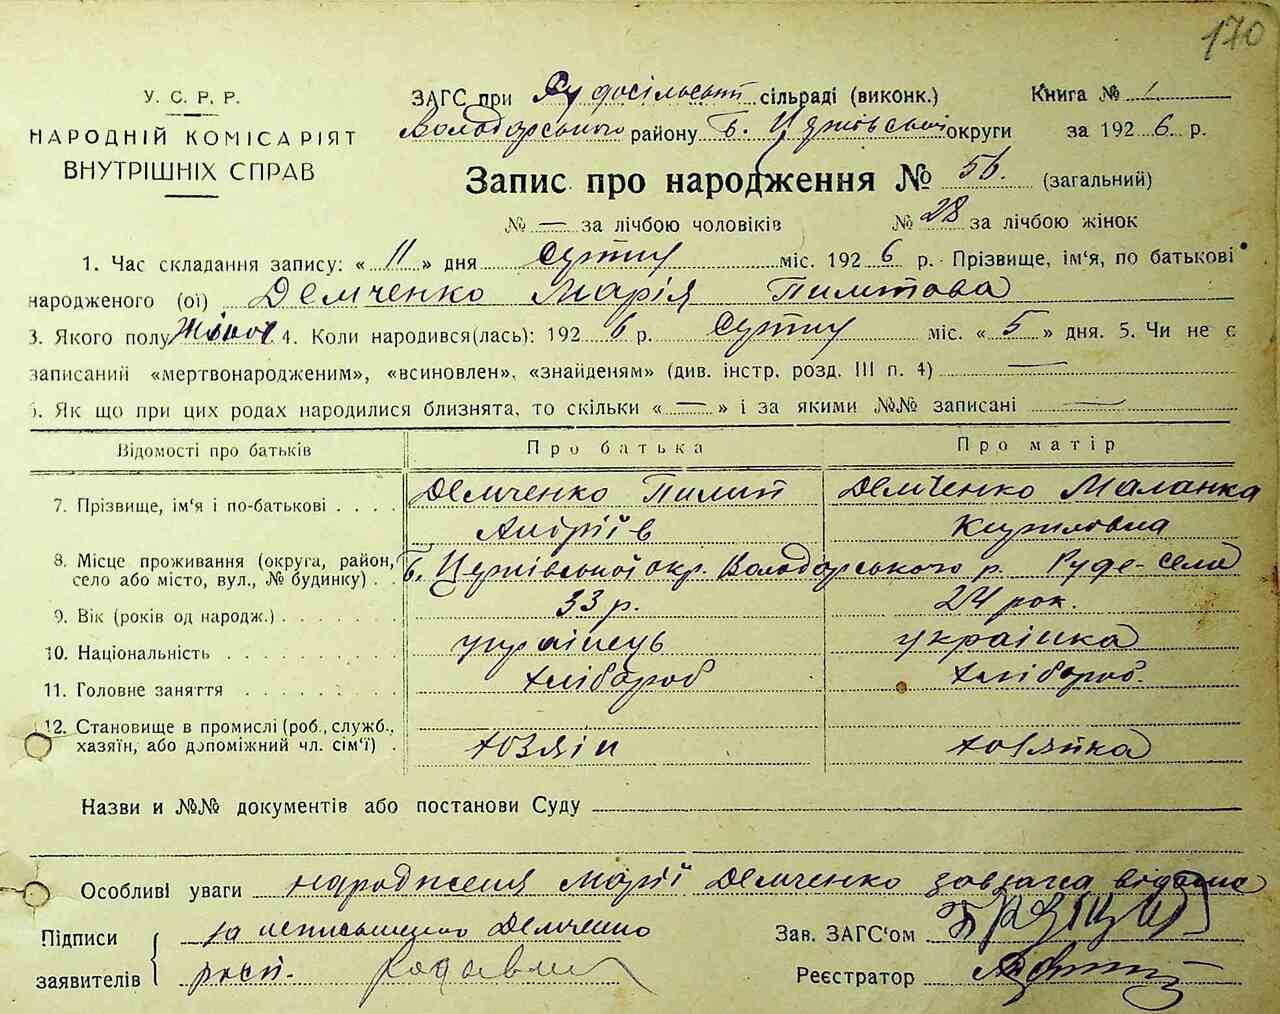 170
У. С. Р. Р.
НАРОДНІЙ КОМІСАРІЯТ
ВНУТРІШНІХ СПРАВ
ЗАГС при Рудосільській сільраді (виконк.) Книга № 1
Володарського району Б. Церківської округи за 1926 р.
Запис про народження № 56. (загальний)
№ — за лічбою чоловіків № 28 за лічбою жінок
1. Час складання запису: «11» дня міс. 1926 р. Прізвище, ім'я, по батькові
народженого (ої) Демченко Марія Пилипова
3. Якого полу Жіноч 4. Коли народився(лась): 1926 р. міс. «5» дня. 5. Чи не є
записаний «мертвонародженим», «всиновлен», «знайденям» (див. інстр. розд. III п. 4) —
6. Як що при цих родах народилися близнята, то скільки «—» і за якими №№ записані —
Відомості про батьків Про батька Про матір
7. Прізвище, ім'я і по-батькові . . . . Демченко Пилип Андріїв Демченко Маланка Кириловна
8. Місце проживання (округа, район, село або місто, вул., № будинку) . . Б. Церківської окр. Володарського р. Руде-село
9. Вік (років од народж.) . . . . . . . 33 р. 24 рок.
10. Національність . . . . . . . . . українець українка
11. Головне заняття . . . . . . . . хлібороб хлібороб.
12. Становище в промислі (роб., служб., хазяїн, або допоміжний чл. сім'ї) . хозяін хозяйка
Назви и №№ документів або постанови Суду
Особливі уваги народження Марії Демченко
Підписи заявителів за неписьменого Демченко
росп.
Зав. ЗАГС'ом
Реєстратор